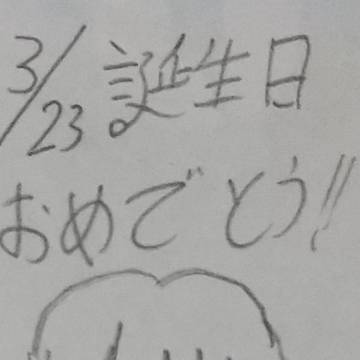 3/23 誕生日
おめでとう!!